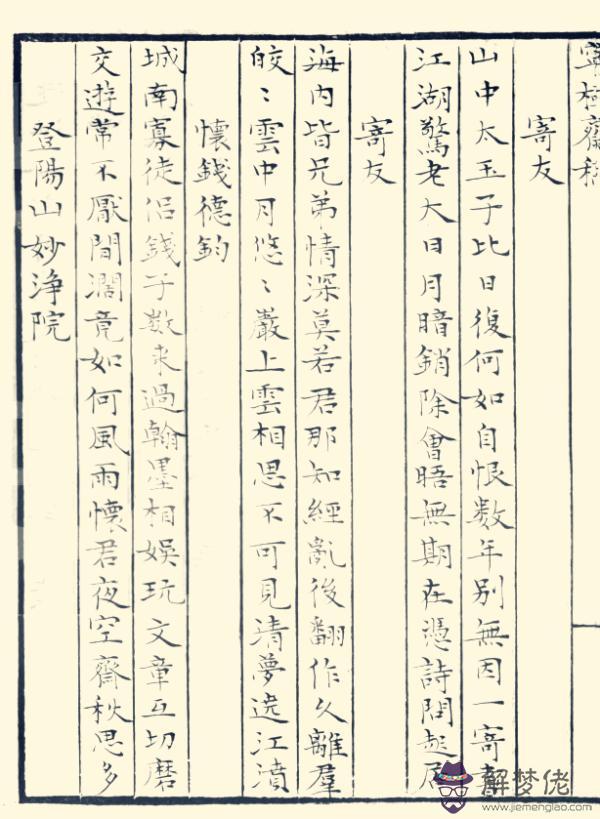 寧極齋稿
寄友
山中太玉子比日復何如自恨数年别無因一寄書
江湖驚老大日月暗銷除會晤無期在憑詩問起居
寄友
海内皆兄弟情深莫若君那知經亂後翻作久離羣
皎〻雲中月悠〻巖上雲相思不可見清夢遶江濆
懷錢德鈞
城南寡徒侣錢子数來過翰墨相娯玩文章互切磨
交遊常不厭間濶竟如何風雨懷君夜空齋秋思多
登陽山妙淨院
解梦佬
www.jiemenglao.com